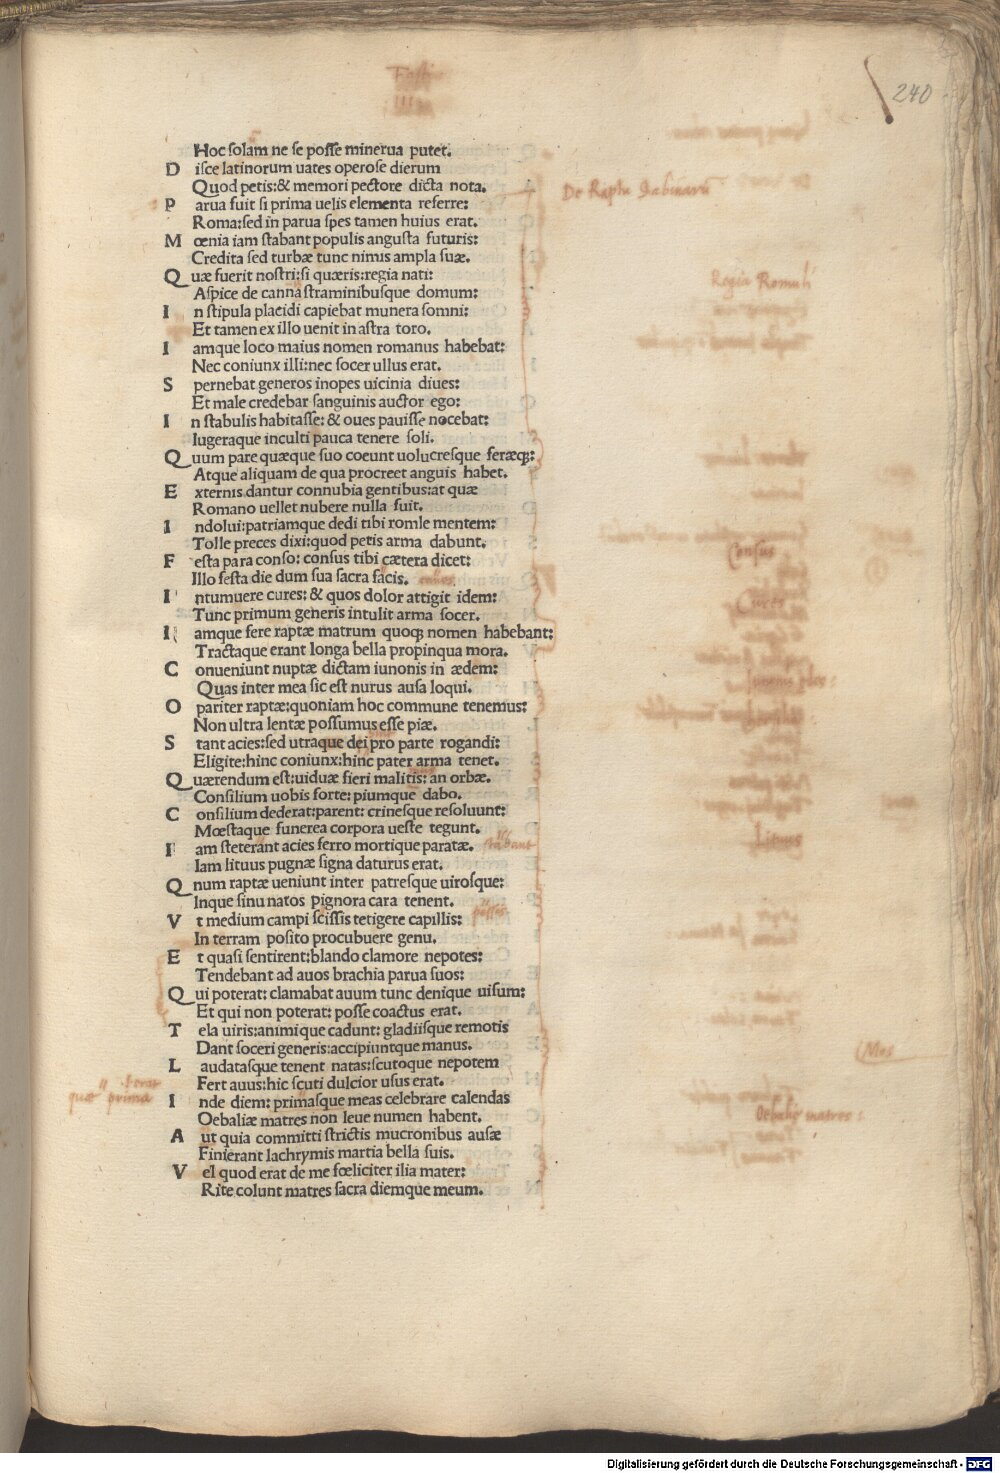 Fastio
III
240
Hoc solam ne se posse minerua putet.
D isce latinorum uates operose dierum
Quod petis:& memori pectore dicta nota.
De Raptu Sabinarū
P arua fuit si prima uelis elementa referre:
Roma:sed in parua spes tamen huius erat.
M œnia iam stabant populis angusta futuris:
Credita sed turbæ tunc nimis ampla suæ.
Q uæ fuerit nostri:si quæris:regia nati:
Regia Romuli
Aspice de canna straminibusque domum:
I n stipula placidi capiebat munera somni:
Et tamen ex illo uenit in astra toro.
I amque loco maius nomen romanus habebat:
Nec coniunx illi:nec socer ullus erat.
S pernebat generos inopes uicinia diues:
Et male credebar sanguinis auctor ego:
I n stabulis habitasse: & oues pauisse nocebat:
Iugeraque inculti pauca tenere soli.
Q uum pare quæque suo coeunt uolucresque feræqꝫ:
Atque aliquam de qua procreet anguis habet.
E xternis dantur connubia gentibus:at quæ
Romano uellet nubere nulla fuit.
I ndolui:patriamque dedi tibi romle mentem:
Tolle preces dixi:quod petis arma dabunt.
F esta para conso: consus tibi cætera dicet:
Consus
Illo festa die dum sua sacra facis.
I ntumuere cures: & quos dolor attigit idem:
Cures
Tunc primum generis intulit arma socer.
I amque fere raptæ matrum quoqꝫ nomen habebant:
Tractaque erant longa bella propinqua mora.
C onueniunt nuptæ dictam iunonis in ædem:
Iunonis ędes:
Quas inter mea sic est nurus ausa loqui.
O pariter raptæ:quoniam hoc commune tenemus:
Non ultra lentæ possumus esse piæ.
S tant acies:sed utraque dei pro parte rogandi:
Eligite:hinc coniunx:hinc pater arma tenet.
Q uærendum est:uiduæ fieri malitis: an orbæ.
Consilium uobis forte: piumque dabo.
C onsilium dederat:parent: crinesque resoluunt:
Mœstaque funerea corpora ueste tegunt.
I am steterant acies ferro mortique paratæ.
stabant
Iam lituus pugnæ signa daturus erat.
Lituus
Q num raptæ ueniunt inter patresque uirosque:
Inque sinu natos pignora cara tenent.
V t medium campi scissis tetigere capillis:
passis
In terram posito procubuere genu.
E t quasi sentirent:blando clamore nepotes:
Tendebant ad auos brachia parua suos:
Q ui poterat: clamabat auum tunc denique uisum:
Et qui non poterat: posse coactus erat.
T ela uiris:animique cadunt: gladiisque remotis
Dant soceri generis:accipiuntque manus.
Mos
L audatasque tenent natas:scutoque nepotem
Fert auus:hic scuti dulcior usus erat.
quæ prima
I nde diem: primasque meas celebrare calendas
Oebaliæ matres non leue numen habent.
Oebalię matres:
A ut quia committi strictis mucronibus ausæ
Finierant lachrymis martia bella suis.
V el quod erat de me fœliciter ilia mater:
Rite colunt matres sacra diemque meum.
Digitalisierung gefördert durch die Deutsche Forschungsgemeinschaft - DFG